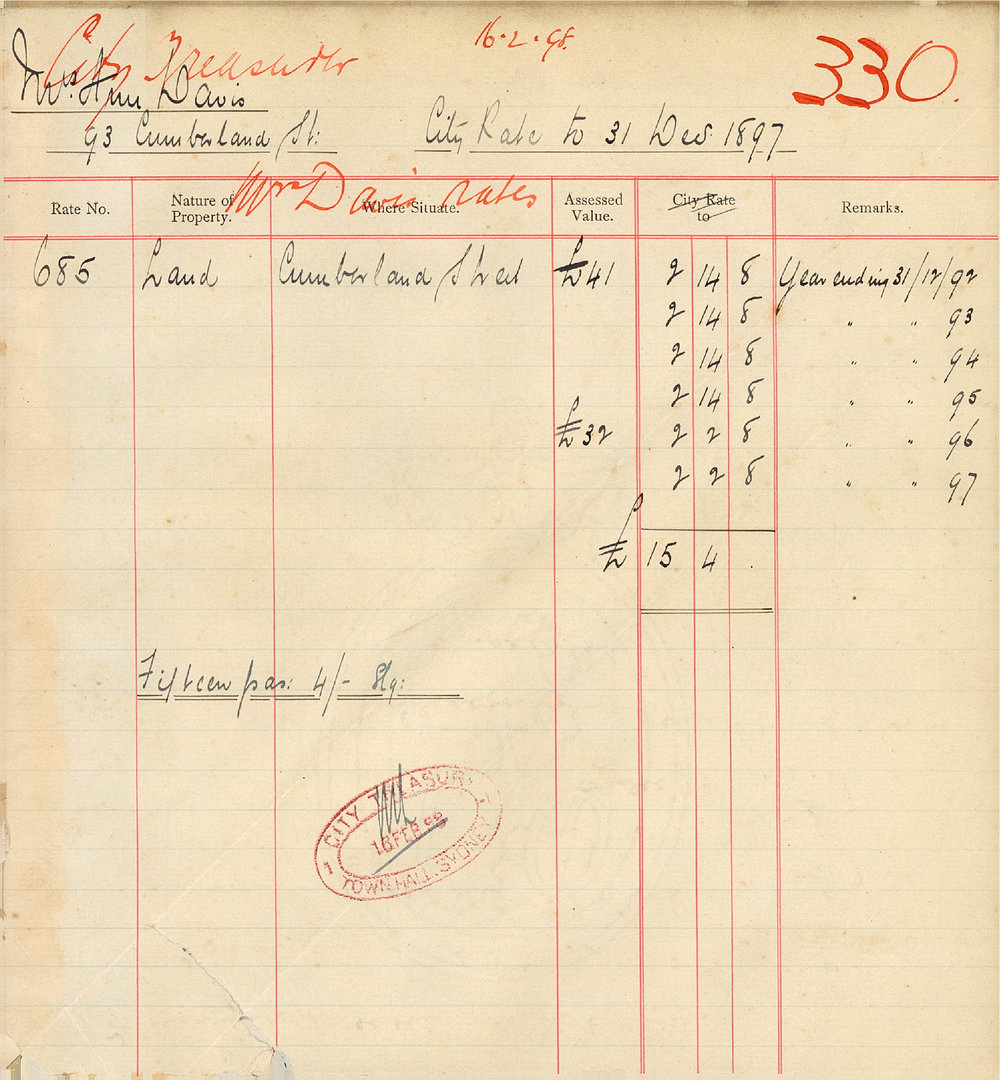 City Treasurer
16.2.98.
330.
Mrs. Ann Davis
93 Cumberland St:
City Rate to 31 Dec 1897
Mrs Davis rates
Rate No. Nature of Property. Where Situate. Assessed Value. City Rate to Remarks.
685 Land Cumberland Street £41 2 14 8 Year ending 31/12/92
2 14 8 " " 93
2 14 8 " " 94
2 14 8 " " 95
£32 2 2 8 " " 96
2 2 8 " " 97
£ 15 4 .
Fifteen pds: 4/- Stg:
CITY TREASURY
16 FEB 98
TOWN HALL, SYDNEY